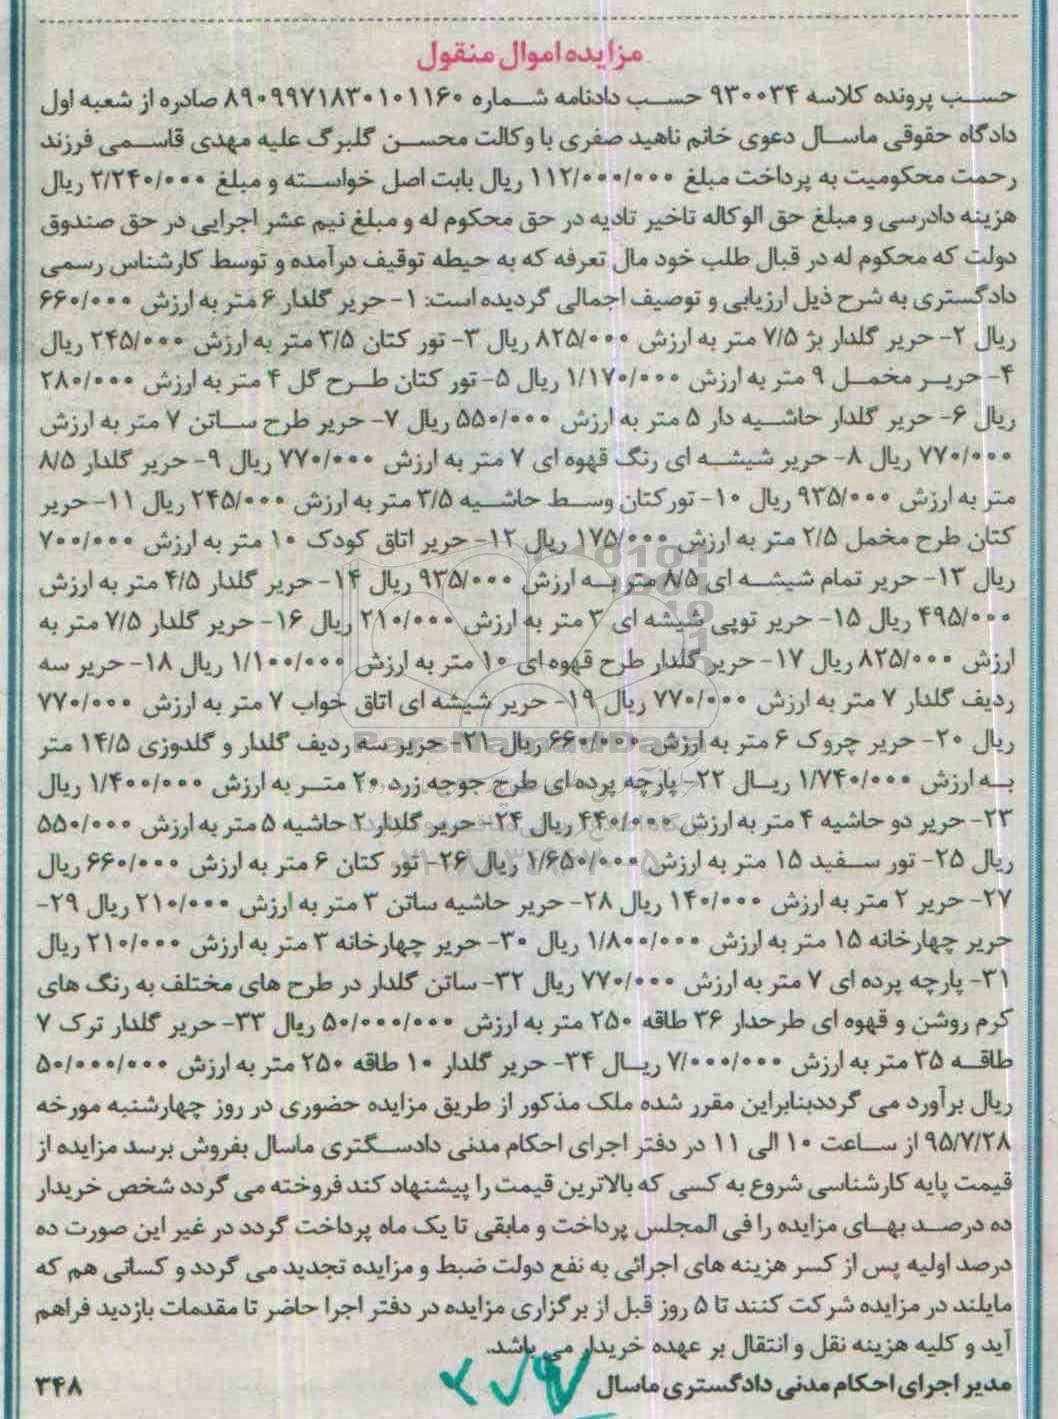 مزایده اموال منقول
حسب پرونده کلاسه ۹۳۰۰۳۴ حسب دادنامه شماره ۸۹۰۹۹۷۱۸۳۰۱۰۱۱۶۰ صادره از شعبه اول
دادگاه حقوقی ماسال دعوی خانم ناهید صفری با وکالت محسن گلبرگ علیه مهدی قاسمی فرزند
رحمت محکومیت به پرداخت مبلغ ۱۱۲/۰۰۰/۰۰۰ ریال بابت اصل خواسته و مبلغ ۲/۲۴۰/۰۰۰ ریال
هزینه دادرسی و مبلغ حق الوکاله تاخیر تادیه در حق محکوم له و مبلغ نیم عشر اجرایی در حق صندوق
دولت که محکوم له در قبال طلب خود مال تعرفه که به حیطه توقیف درآمده و توسط کارشناس رسمی
دادگستری به شرح ذیل ارزیابی و توصیف اجمالی گردیده است: ۱- حریر گلدار ۶ متر به ارزش ۶۶۰/۰۰۰
ریال ۲- حریر گلدار بژ ۷/۵ متر به ارزش ۸۲۵/۰۰۰ ریال ۳- تور کتان ۳/۵ متر به ارزش ۲۴۵/۰۰۰ ریال
۴- حریر مخمل ۹ متر به ارزش ۱/۱۷۰/۰۰۰ ریال ۵- تور کتان طرح گل ۴ متر به ارزش ۲۸۰/۰۰۰
ریال ۶- حریر گلدار حاشیه دار ۵ متر به ارزش ۵۵۰/۰۰۰ ریال ۷- حریر طرح ساتن ۷ متر به ارزش
۷۷۰/۰۰۰ ریال ۸- حریر شیشه ای رنگ قهوه ای ۷ متر به ارزش ۷۷۰/۰۰۰ ریال ۹- حریر گلدار ۸/۵
متر به ارزش ۹۳۵/۰۰۰ ریال ۱۰- تورکتان وسط حاشیه ۳/۵ متر به ارزش ۲۴۵/۰۰۰ ریال ۱۱- حریر
کتان طرح مخمل ۲/۵ متر به ارزش ۱۷۵/۰۰۰ ریال ۱۲- حریر اتاق کودک ۱۰ متر به ارزش ۷۰۰/۰۰۰
ریال ۱۳- حریر تمام شیشه ای ۸/۵ متر به ارزش ۹۳۵/۰۰۰ ریال ۱۴- حریر گلدار ۴/۵ متر به ارزش
۴۹۵/۰۰۰ ریال ۱۵- حریر توپی شیشه ای ۳ متر به ارزش ۲۱۰/۰۰۰ ریال ۱۶- حریر گلدار ۷/۵ متر به
ارزش ۸۲۵/۰۰۰ ریال ۱۷- حریر گلدار طرح قهوه ای ۱۰ متر به ارزش ۱/۱۰۰/۰۰۰ ریال ۱۸- حریر سه
ردیف گلدار ۷ متر به ارزش ۷۷۰/۰۰۰ ریال ۱۹- حریر شیشه ای اتاق خواب ۷ متر به ارزش ۷۷۰/۰۰۰
ریال ۲۰- حریر چروک ۶ متر به ارزش ۶۶۰/۰۰۰ ریال ۲۱- حریر سه ردیف گلدار و گلدوزی ۱۴/۵ متر
به ارزش ۱/۷۴۰/۰۰۰ ریال ۲۲- پارچه پرده ای طرح جوجه زرد ۲۰ متر به ارزش ۱/۴۰۰/۰۰۰ ریال
۲۳- حریر دو حاشیه ۴ متر به ارزش ۴۴۰/۰۰۰ ریال ۲۴- حریر گلدار ۲ حاشیه ۵ متر به ارزش ۵۵۰/۰۰۰
ریال ۲۵- تور سفید ۱۵ متر به ارزش ۱/۶۵۰/۰۰۰ ریال ۲۶- تور کتان ۶ متر به ارزش ۶۶۰/۰۰۰ ریال
۲۷- حریر ۲ متر به ارزش ۱۴۰/۰۰۰ ریال ۲۸- حریر حاشیه ساتن ۳ متر به ارزش ۲۱۰/۰۰۰ ریال ۲۹-
حریر چهارخانه ۱۵ متر به ارزش ۱/۸۰۰/۰۰۰ ریال ۳۰- حریر چهارخانه ۳ متر به ارزش ۲۱۰/۰۰۰ ریال
۳۱- پارچه پرده ای ۷ متر به ارزش ۷۷۰/۰۰۰ ریال ۳۲- ساتن گلدار در طرح های مختلف به رنگ های
کرم روشن و قهوه ای طرحدار ۳۶ طاقه ۲۵۰ متر به ارزش ۵۰/۰۰۰/۰۰۰ ریال ۳۳- حریر گلدار ترک ۷
طاقه ۳۵ متر به ارزش ۷/۰۰۰/۰۰۰ ریال ۳۴- حریر گلدار ۱۰ طاقه ۲۵۰ متر به ارزش ۵۰/۰۰۰/۰۰۰
ریال برآورد می گرددبنابراین مقرر شده ملک مذکور از طریق مزایده حضوری در روز چهارشنبه مورخه
۹۵/۷/۲۸ از ساعت ۱۰ الی ۱۱ در دفتر اجرای احکام مدنی دادسگتری ماسال بفروش برسد مزایده از
قیمت پایه کارشناسی شروع به کسی که بالاترین قیمت را پیشنهاد کند فروخته می گردد شخص خریدار
ده درصد بهای مزایده را فی المجلس پرداخت و مابقی تا یک ماه پرداخت گردد در غیر این صورت ده
درصد اولیه پس از کسر هزینه های اجرائی به نفع دولت ضبط و مزایده تجدید می گردد و کسانی هم که
مایلند در مزایده شرکت کنند تا ۵ روز قبل از برگزاری مزایده در دفتر اجرا حاضر تا مقدمات بازدید فراهم
آید و کلیه هزینه نقل و انتقال بر عهده خریدار می باشد.
مدیر اجرای احکام مدنی دادگستری ماسال ۳۴۸